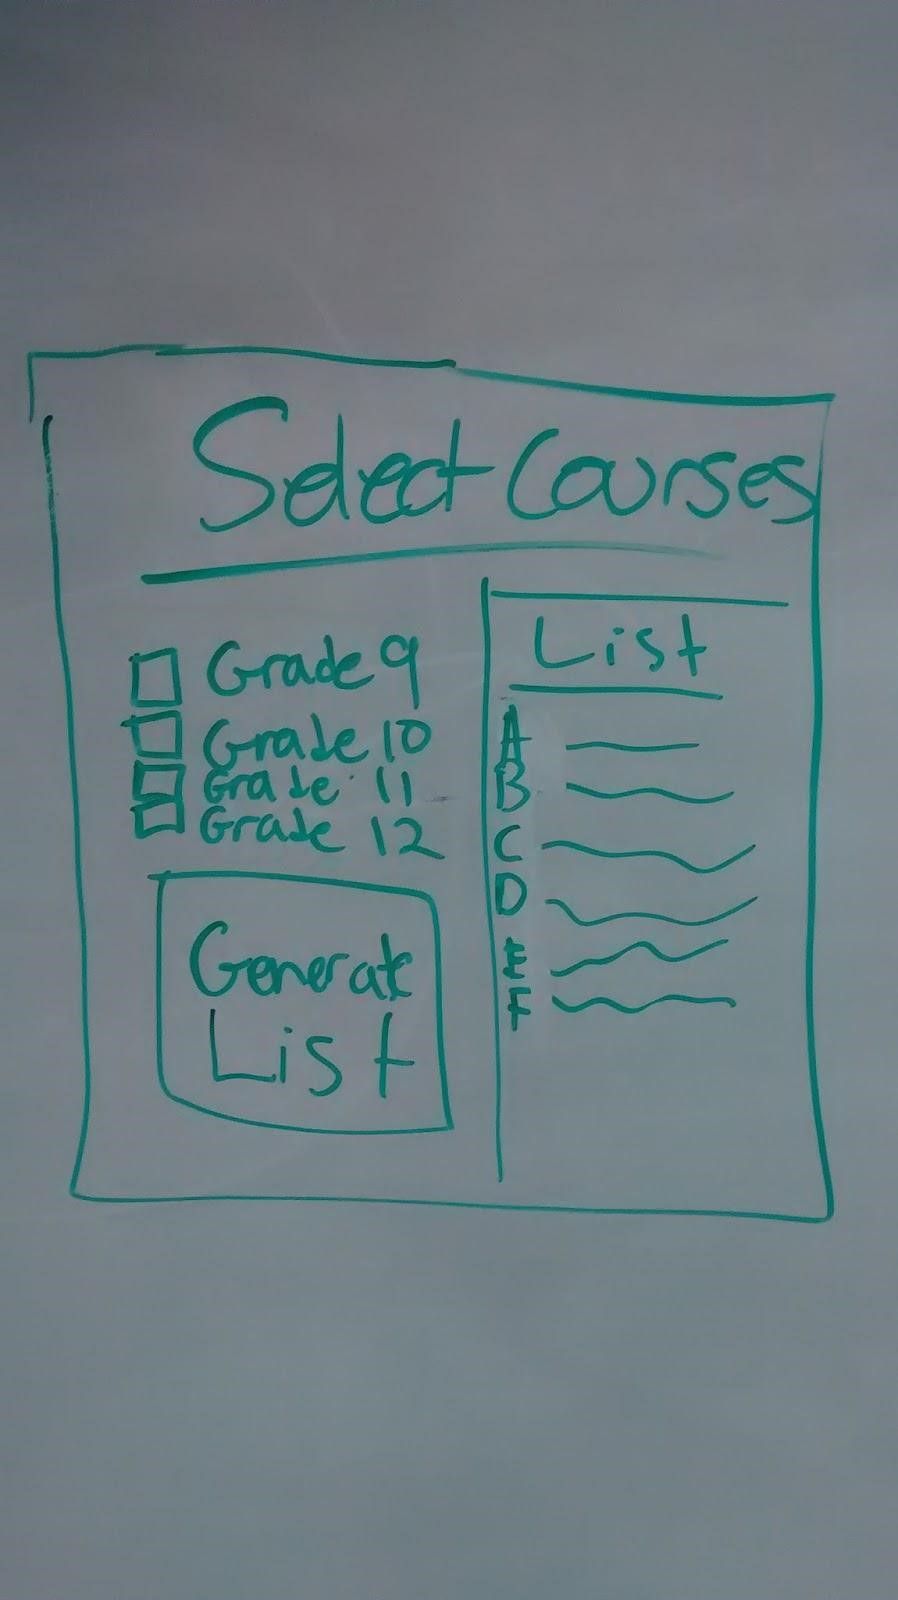 Select Courses
Grade 9
Grade 10
Grade 11
Grade 12
Generate
List
List
A
B
C
D
E
F